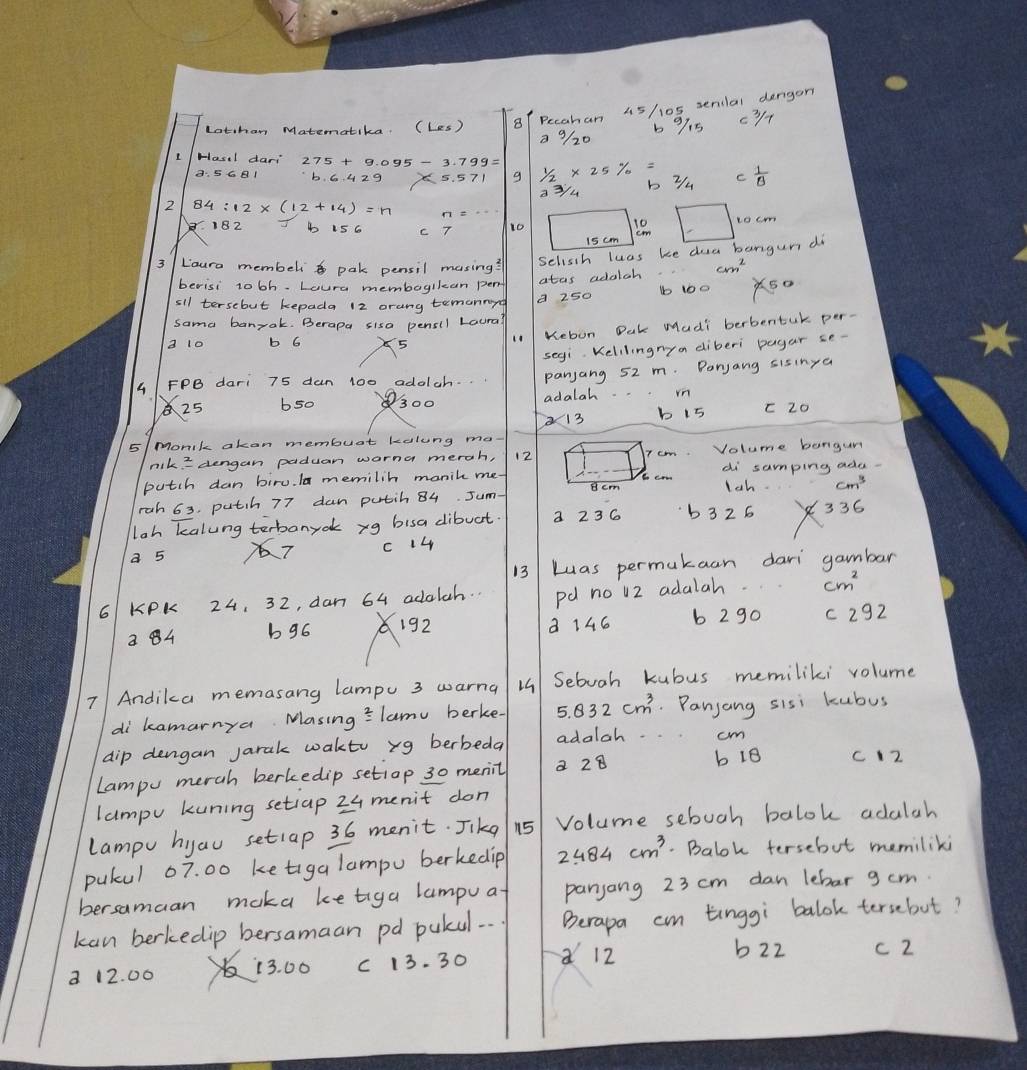 Latihan Matematika. (Les)
1 Hasil dari 275 + 9.095 - 3.799 =
a. 5681 b. 6.429 5.571
2 84 : 12 × (12 + 14) = n n = ...
a. 182 b 156 c 7
3 Laura membeli pak pensil masing²
berisi 10 bh. Laura membagikan pen
sil tersebut kepada 12 orang temannya
sama banyak. Berapa sisa pensil Laura?
a 10 b 6 5
4. FPB dari 75 dan 100 adalah...
a 25 b 50 300
5 Monik akan membuat kalung ma-
nik² dengan paduan warna merah,
putih dan biru. Ia memilih manik me-
rah 63. putih 77 dan putih 84. Jum-
lah kalung terbanyak yg bisa dibuat.
a 5 b 7 c 14
6 KPK 24, 32, dan 64 adalah..
a 84 b 96 c 192
7 Andika memasang lampu 3 warna
di kamarnya. Masing² lamu berke-
dip dengan jarak waktu yg berbeda
Lampu merah berkedip setiap 30 menit
lampu kuning setiap 24 menit dan
Lampu hijau setiap 36 menit. Jika
pukul 07.00 ketiga lampu berkedip
bersamaan maka ketiga lampu a-
kan berkedip bersamaan pd pukul...
a 12.00 b 13.00 c 13.30
8 Pecahan 45/105 senilai dengan
a 9/20 b 9/15 c 3/7
9 1/2 × 25 % =
a 3/4 b 2/4 c 1/8
10 15 cm 10 cm 10 cm
Selisih luas ke dua bangun di
atas adalah ... cm²
a 250 b 100 50
11 Kebon Pak Madi berbentuk per-
segi. Kelilingnya diberi pagar se-
panjang 52 m. Panjang sisinya
adalah .... m
a 13 b 15 c 20
12 7 cm. Volume bangun
6 cm di samping ada-
8 cm lah... cm³
a 236 b 326 c 336
13 Luas permukaan dari gambar
pd no 12 adalah ... cm²
a 146 b 290 c 292
14 Sebuah kubus memiliki volume
5.832 cm³. Panjang sisi kubus
adalah .... cm
a 28 b 18 c 12
15 Volume sebuah balok adalah
2.484 cm³. Balok tersebut memiliki
panjang 23 cm dan lebar 9 cm.
Berapa cm tinggi balok tersebut?
a 12 b 22 c 2